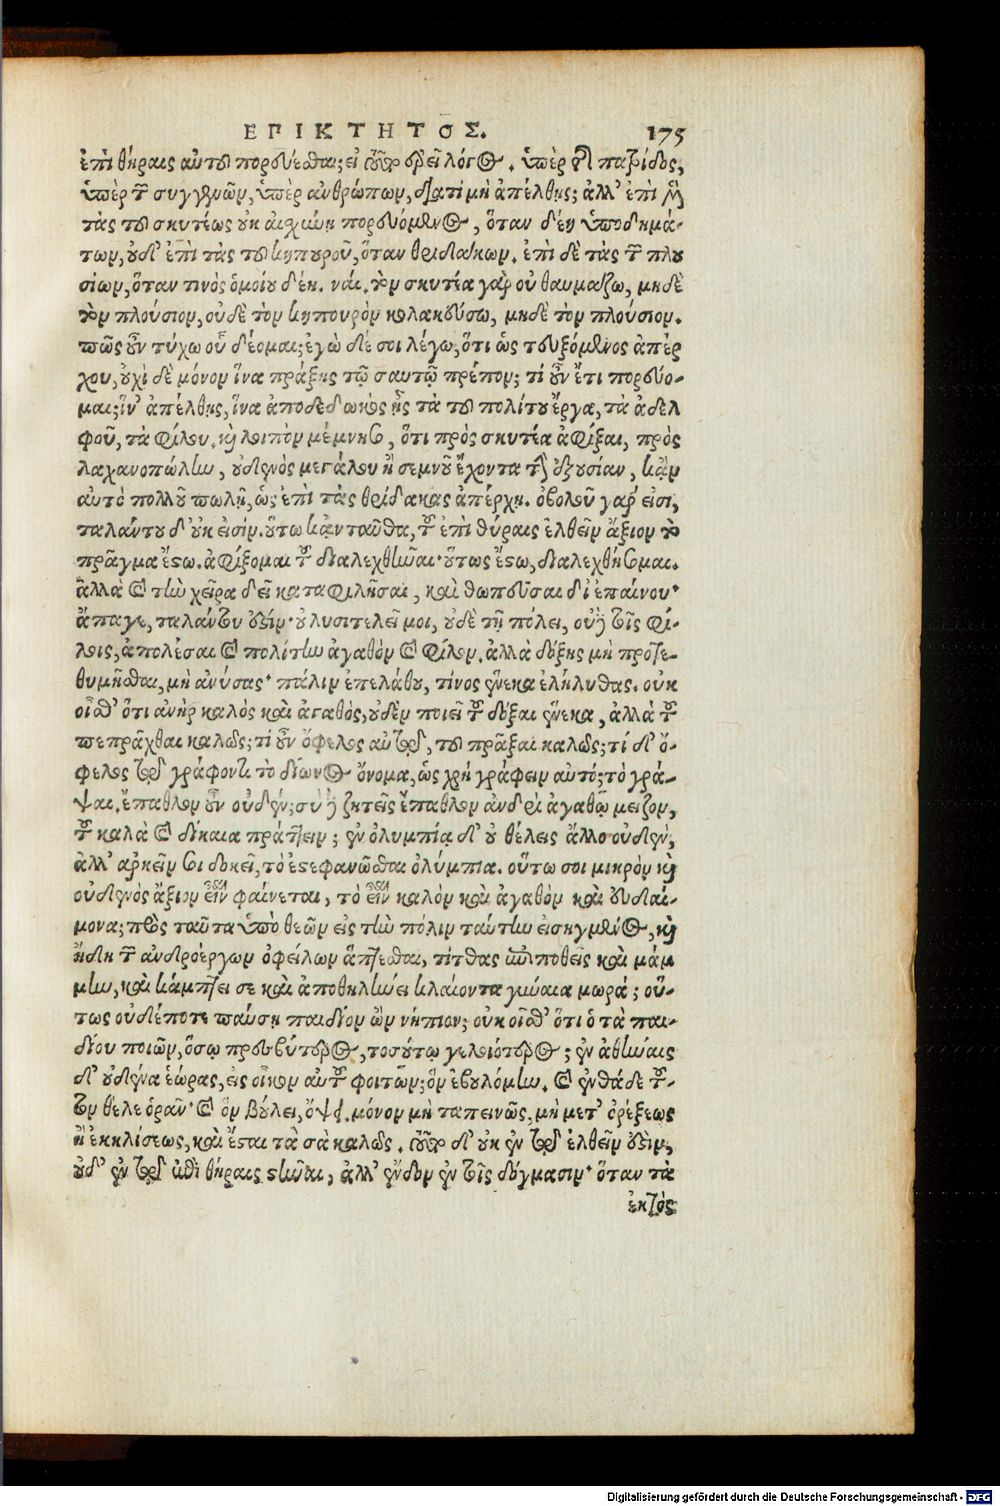 ΕΠΙΚΤΗΤΟΣ. 175
ἐπὶ θήραις αὐτοῦ πορεύεσθαι; εἰ τοῦτο αἱρεῖ λόγος. ὑπὲρ τῆς πατρίδος,
ὑπὲρ τῶν συγγενῶν, ὑπὲρ ἀνθρώπων, διατί μὴ ἀπέλθῃς; ἀλλ' ἐπὶ μὲν
τὰς τοῦ σκυτέως οὐκ αἰσχύνῃ πορευόμενος, ὅταν δέῃ ὑποδημά-
των, οὐδ' ἐπὶ τὰς τοῦ κηπουροῦ, ὅταν θριδάκων. ἐπὶ δὲ τὰς τῶν πλου
σίων, ὅταν τινὸς ὁμοίου δέῃ. ναί. τὸν σκυτέα γὰρ οὐ θαυμάζω, μηδὲ
τὸν πλούσιον, οὐδὲ τὸν κηπουρὸν κολακεύσω, μηδὲ τὸν πλούσιον.
πῶς οὖν τύχω οὗ δέομαι; ἐγὼ δέ σοι λέγω, ὅτι ὡς τευξόμενος ἀπέρ
χου, οὐχὶ δὲ μόνον ἵνα πράξῃς τῷ σαυτῷ πρέπον; τί οὖν ἔτι πορεύο-
μαι; ἵν' ἀπέλθῃς, ἵνα ἀποδεδωκὼς ᾖς τὰ τοῦ πολίτου ἔργα, τὰ ἀδελ
φοῦ, τὰ φίλου. καὶ λοιπὸν μέμνησο, ὅτι πρὸς σκυτέα ἀφῖξαι, πρὸς
λαχανοπώλην, οὐδενὸς μεγάλου ἢ σεμνοῦ ἔχοντα τὴν ἐξουσίαν, κἂν
αὐτὸ πολλοῦ πωλῇ, ὡς ἐπὶ τὰς θρίδακας ἀπέρχῃ. ὀβολοῦ γάρ εἰσι,
ταλάντου δ' οὐκ εἰσίν. οὕτω κἀνταῦθα, τοῦ ἐπὶ θύραις ἐλθεῖν ἄξιον τὸ
πρᾶγμα ἔστω. ἀφίξομαι τοῦ διαλεχθῆναι· οὕτως ἔστω, διαλεχθήσομαι.
ἀλλὰ καὶ τὴν χεῖρα δεῖ καταφιλῆσαι, καὶ θωπεῦσαι δι' ἐπαίνου·
ἄπαγε, ταλάντου ἐστίν· οὐ λυσιτελεῖ μοι, οὐδὲ τῇ πόλει, οὐδὲ τοῖς φί-
λοις, ἀπολέσαι καὶ πολίτην ἀγαθὸν καὶ φίλον. ἀλλὰ δόξῃς μὴ προτε-
θυμῆσθαι, μὴ ἀνύσας· πάλιν ἐπελάθου, τίνος ἕνεκα ἐλήλυθας. οὐκ
οἶσθ' ὅτι ἀνὴρ καλὸς καὶ ἀγαθὸς, οὐδὲν ποιεῖ τοῦ δόξαι ἕνεκα, ἀλλὰ τοῦ
πεπρᾶχθαι καλῶς; τί οὖν ὄφελος αὐτῷ, τοῦ πρᾶξαι καλῶς; τί δ' ὄ-
φελος τῷ γράφοντι τὸ Δίωνος ὄνομα, ὡς χρὴ γράφειν αὐτό; τὸ γρά-
ψαι. ἔπαθλον οὖν οὐδέν; σὺ δὲ ζητεῖς ἔπαθλον ἀνδρὶ ἀγαθῷ μεῖζον,
τοῦ καλὰ καὶ δίκαια πράττειν; ἐν ὀλυμπίᾳ δ' οὐ θέλεις ἄλλο οὐδὲν,
ἀλλ' ἀρκεῖν σοι δοκεῖ, τὸ ἐστεφανῶσθαι ὀλύμπια. οὕτω σοι μικρὸν καὶ
οὐδενὸς ἄξιον εἶναι φαίνεται, τὸ εἶναι καλὸν καὶ ἀγαθὸν καὶ εὐδαί-
μονα; πρὸς ταῦτα ὑπὸ θεῶν εἰς τὴν πόλιν ταύτην εἰσηγμένος, καὶ
ἤδη τῶν ἀνδρὸς ἔργων ὀφείλων ἅπτεσθαι, τίτθας ἐπιποθεῖς καὶ μάμ
μην, καὶ κάμπτει σε καὶ ἀποθηλύνει κλαίοντα γύναια μωρά; οὕ-
τως οὐδέποτε παύσῃ παιδίον ὢν νήπιον; οὐκ οἶσθ' ὅτι ὁ τὰ παι-
δίου ποιῶν, ὅσῳ πρεσβύτερος, τοσούτῳ γελοιότερος; ἐν ἀθήναις
δ' οὐδένα ἑώρας, εἰς οἶκον αὐτοῦ φοιτῶν; ὃν ἐβουλόμην. καὶ ἐνθάδε τοῦ-
τον θέλε ὁρᾶν· καὶ ὃν βούλει, ὄψει. μόνον μὴ ταπεινῶς, μὴ μετ' ὀρέξεως
ἢ ἐκκλίσεως, καὶ ἔσται τὰ σὰ καλῶς. τοῦτο δ' οὐκ ἐν τῷ ἐλθεῖν ἐστὶν,
οὐδ' ἐν τῷ ἐπὶ θήραις στῆναι, ἀλλ' ἔνδον ἐν τοῖς δόγμασιν· ὅταν τὰ
ἐκτός
Digitalisierung gefördert durch die Deutsche Forschungsgemeinschaft - DFG